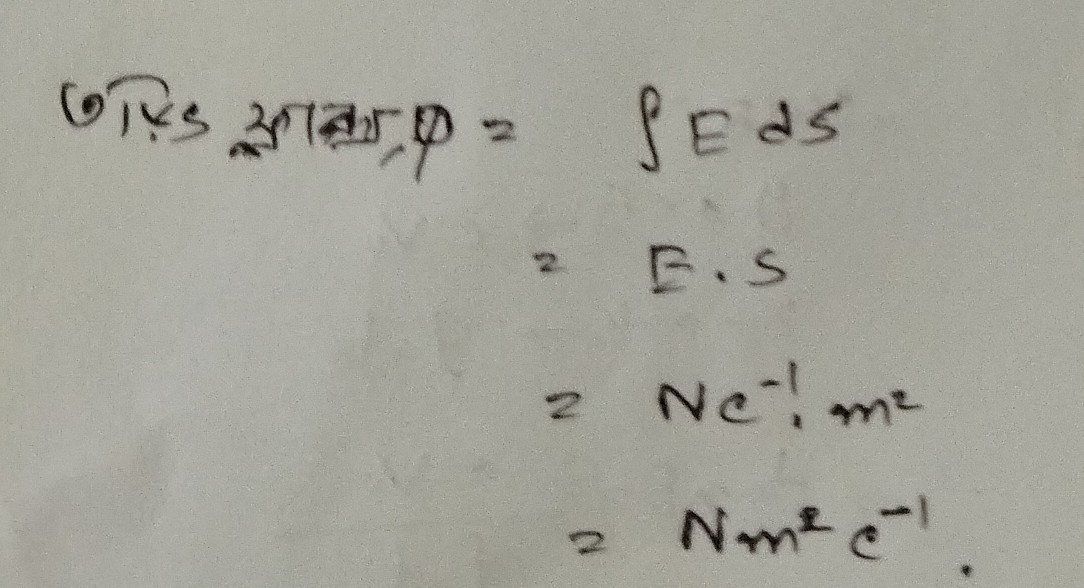 তড়িৎ ফ্লাক্স, φ = ∫ E ds
= E . s
= Nc⁻¹. m²
= Nm² c⁻¹.